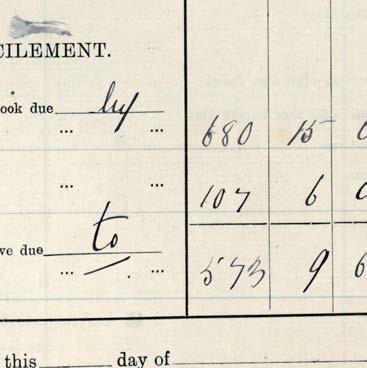 CILEMENT.
ook due by
... ... 680 15
... ... 107 6
ve due to
... ... 573 9 6
this day of